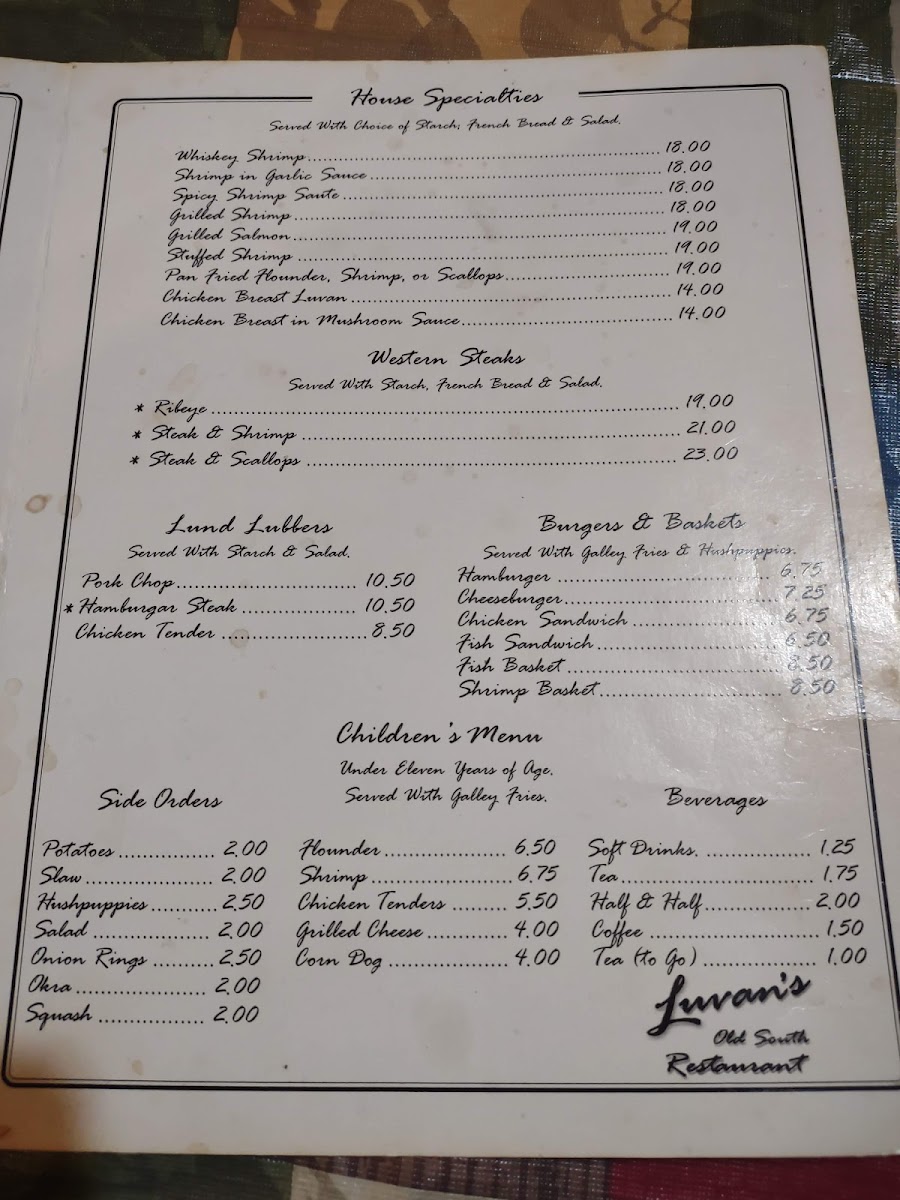 House Specialties
Served With Choice of Starch, French Bread & Salad.
Whiskey Shrimp 18.00
Shrimp in Garlic Sauce 18.00
Spicy Shrimp Saute 18.00
Grilled Shrimp 18.00
Grilled Salmon 19.00
Stuffed Shrimp 19.00
Pan Fried Flounder, Shrimp, or Scallops 19.00
Chicken Breast Luvan 14.00
Chicken Breast in Mushroom Sauce 14.00
Western Steaks
Served With Starch, French Bread & Salad.
* Ribeye 19.00
* Steak & Shrimp 21.00
* Steak & Scallops 23.00
Lund Lubbers
Served With Starch & Salad.
Pork Chop 10.50
* Hamburgar Steak 10.50
Chicken Tender 8.50
Burgers & Baskets
Served With Galley Fries & Hushpuppies.
Hamburger 6.75
Cheeseburger 7.25
Chicken Sandwich 6.75
Fish Sandwich 6.50
Fish Basket 8.50
Shrimp Basket 8.50
Children's Menu
Under Eleven Years of Age.
Served With Galley Fries.
Side Orders
Potatoes 2.00
Slaw 2.00
Hushpuppies 2.50
Salad 2.00
Onion Rings 2.50
Okra 2.00
Squash 2.00
Flounder 6.50
Shrimp 6.75
Chicken Tenders 5.50
Grilled Cheese 4.00
Corn Dog 4.00
Beverages
Soft Drinks. 1.25
Tea 1.75
Half & Half 2.00
Coffee 1.50
Tea (to Go) 1.00
Luvan's
Old South
Restaurant